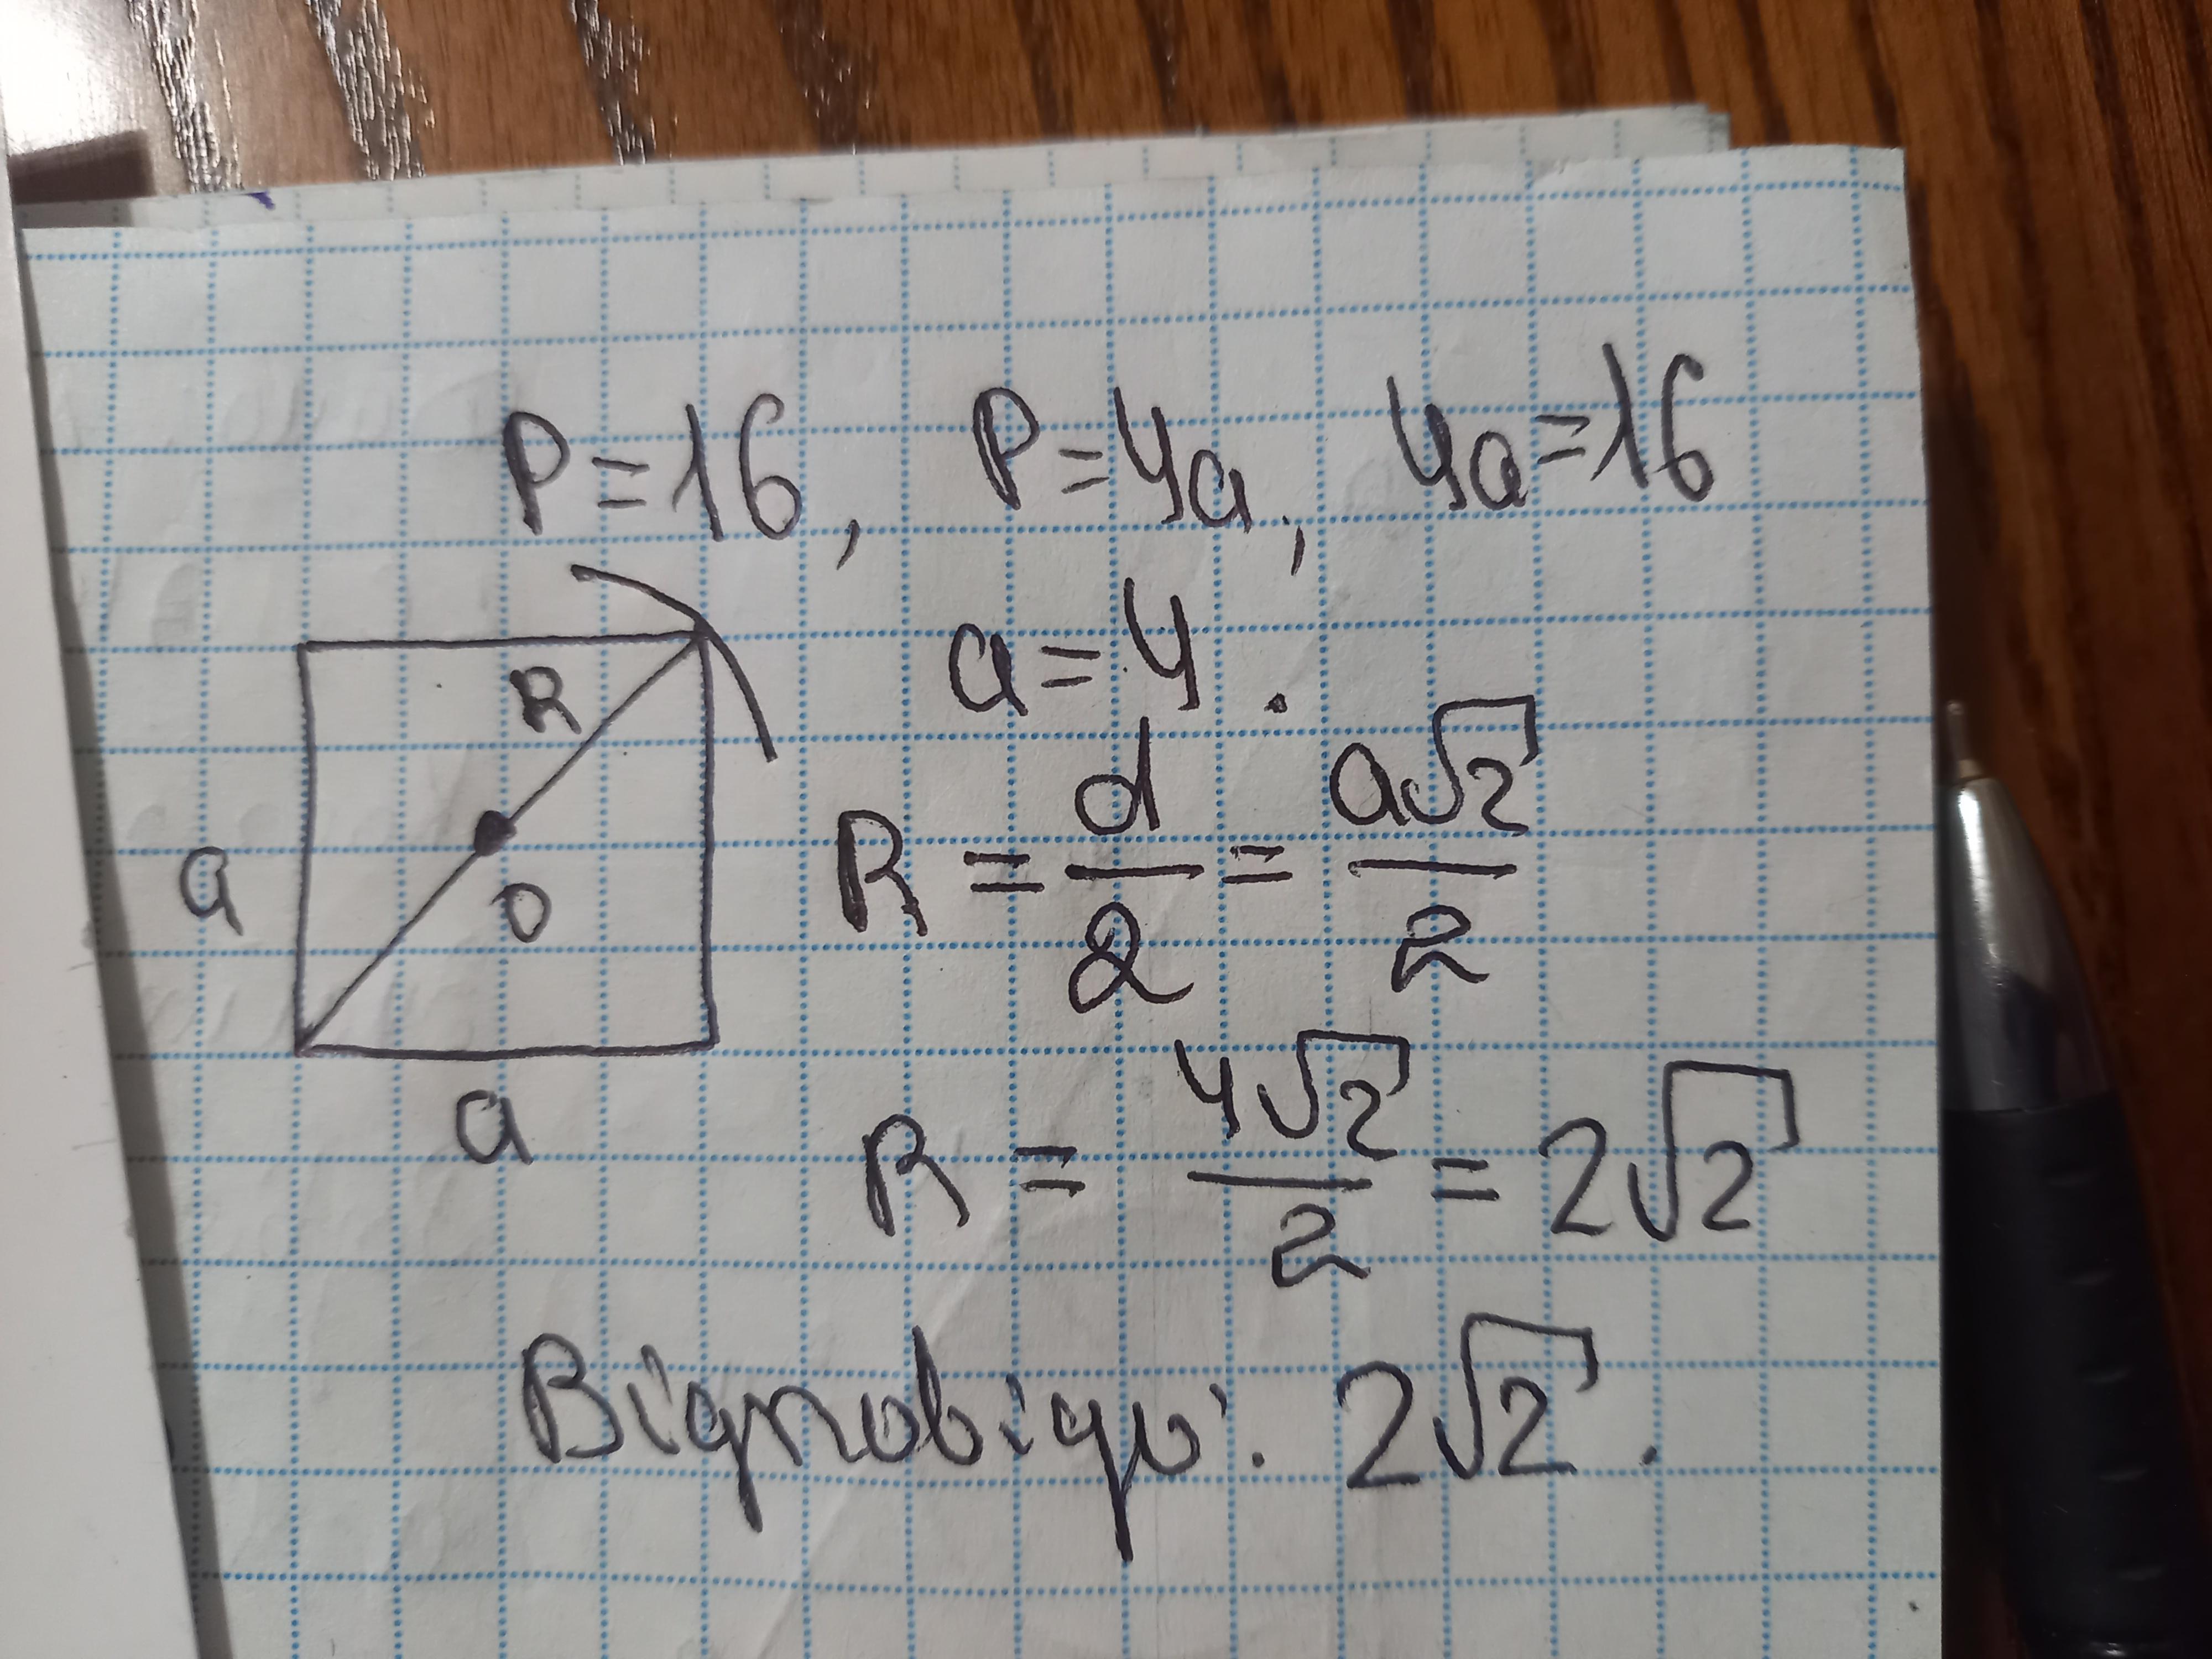 P=16, P=4a, 4a=16
a=4.
R
a
O
a
R = d/2 = a√2/2
R = 4√2/2 = 2√2
Відповідь: 2√2.